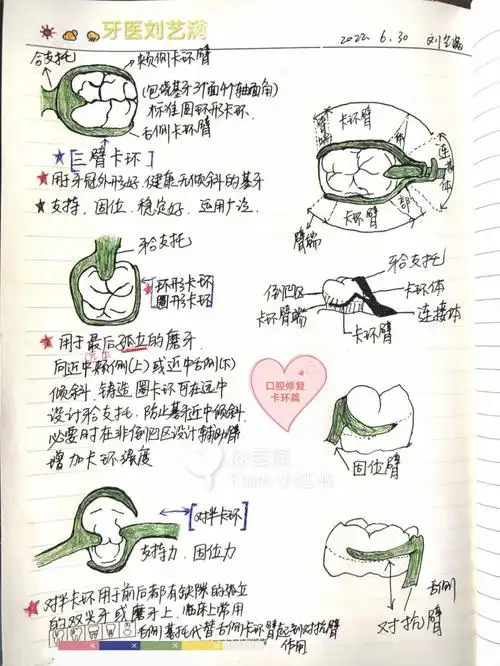 牙医刘艺涵
2022. 6. 30
𬌗支托
颊侧卡环臂
(包绕基牙3个面4个轴面角)
标准圆环形卡环.
舌侧卡环臂
★[三臂卡环]
★用于牙冠外形好.健康无倾斜的基牙
★支持,固位,稳定好.运用广泛.
臂端
卡环臂
体部
连接体
卡环臂
臂端
牙合支托
[环形卡环
圈形卡环
★用于最后孤立的磨牙.
远中
向近中颊侧(上)或近中舌侧(下)
倾斜.铸造圈卡可在远中
设计牙合支托,防止基牙近中倾斜.
必要时在非倒凹区设计辅助臂
增加卡环强度
牙合支托
倒凹区
卡环体
卡环臂端
连接体
卡环臂
口腔修复
卡环篇
固位臂
[对半卡环]
支持力,固位力
舌侧
对抗臂
★对半卡环用于前后都有缺隙的孤立
的双尖牙或磨牙上.临床上常用
舌侧基托代替舌侧卡环臂起到对抗臂
作用